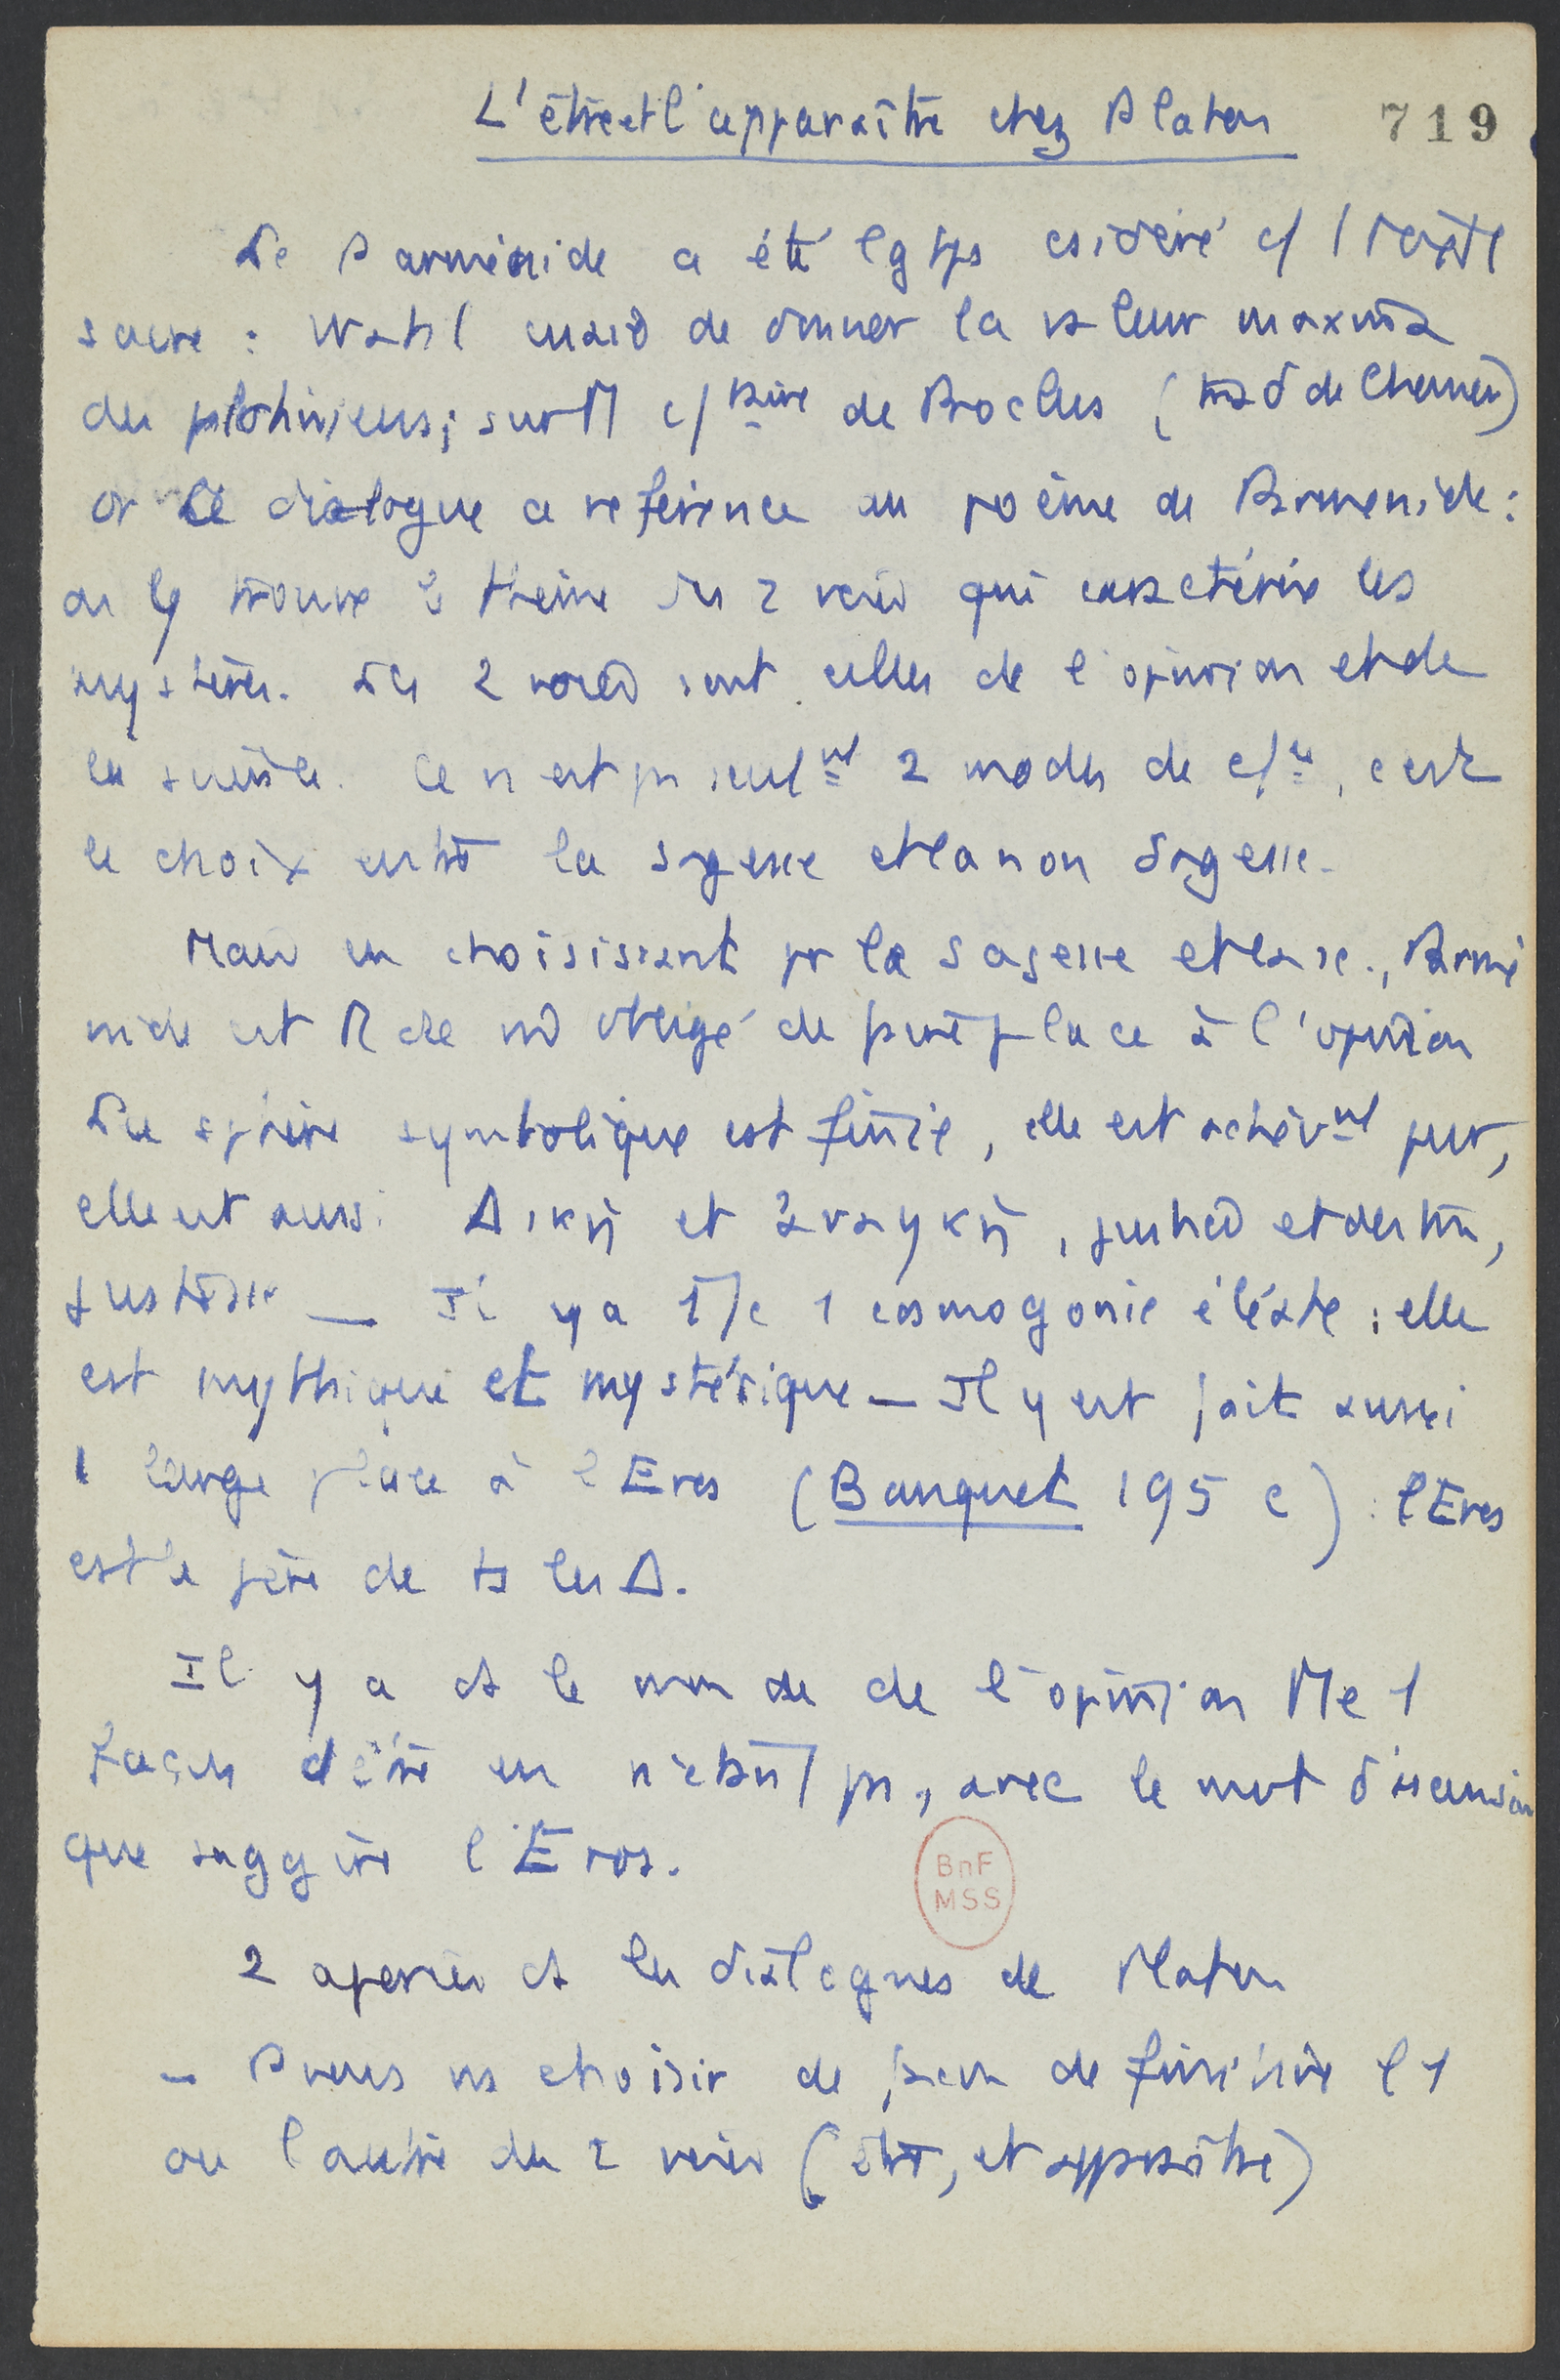 L'être et l'apparaître chez Platon 719
Le Parménide a été lgtps csidéré c/ 1 texte
sacré : Wahl essaie de donner la valeur maxima
des plotiniens ; surtt c/taire de Proclus (trad de Chaignet)
or le dialogue a référence au poème de Parménide :
on y trouve le thème des 2 voies qui caractérise les
mystères. Les 2 voies sont celles de l'opinion et de
la science. Ce n'est pas seulmt 2 modes de c/ce, c'est
le choix entre la sagesse et la non sagesse.
Mais en choisissant pr la sagesse et la sc., Parmé
nide est obligé de faire place à l'opinion
La sphère symbolique est finie, elle est achèvmt pur,
elle est aussi Δικη et Ἀναγκη, justice et destin,
Il y a 1 cosmogonie éléate : elle
est mythique et mystérique — Il y est fait aussi
1 large place à l'Eros (Banquet 195 c) : l'Eros
est le père de ts les Δ.
Il y a ds le monde de l'opinion 1
façon d'être en n'étant pas, avec le mvt d'ascension
que suggère l'Eros.
BnF
MSS
2 aperçus ds les dialogues de Platon
- Prenons ns choisir de façon de finir l'1
ou l'autre des 2 voies (être, et apparaître)